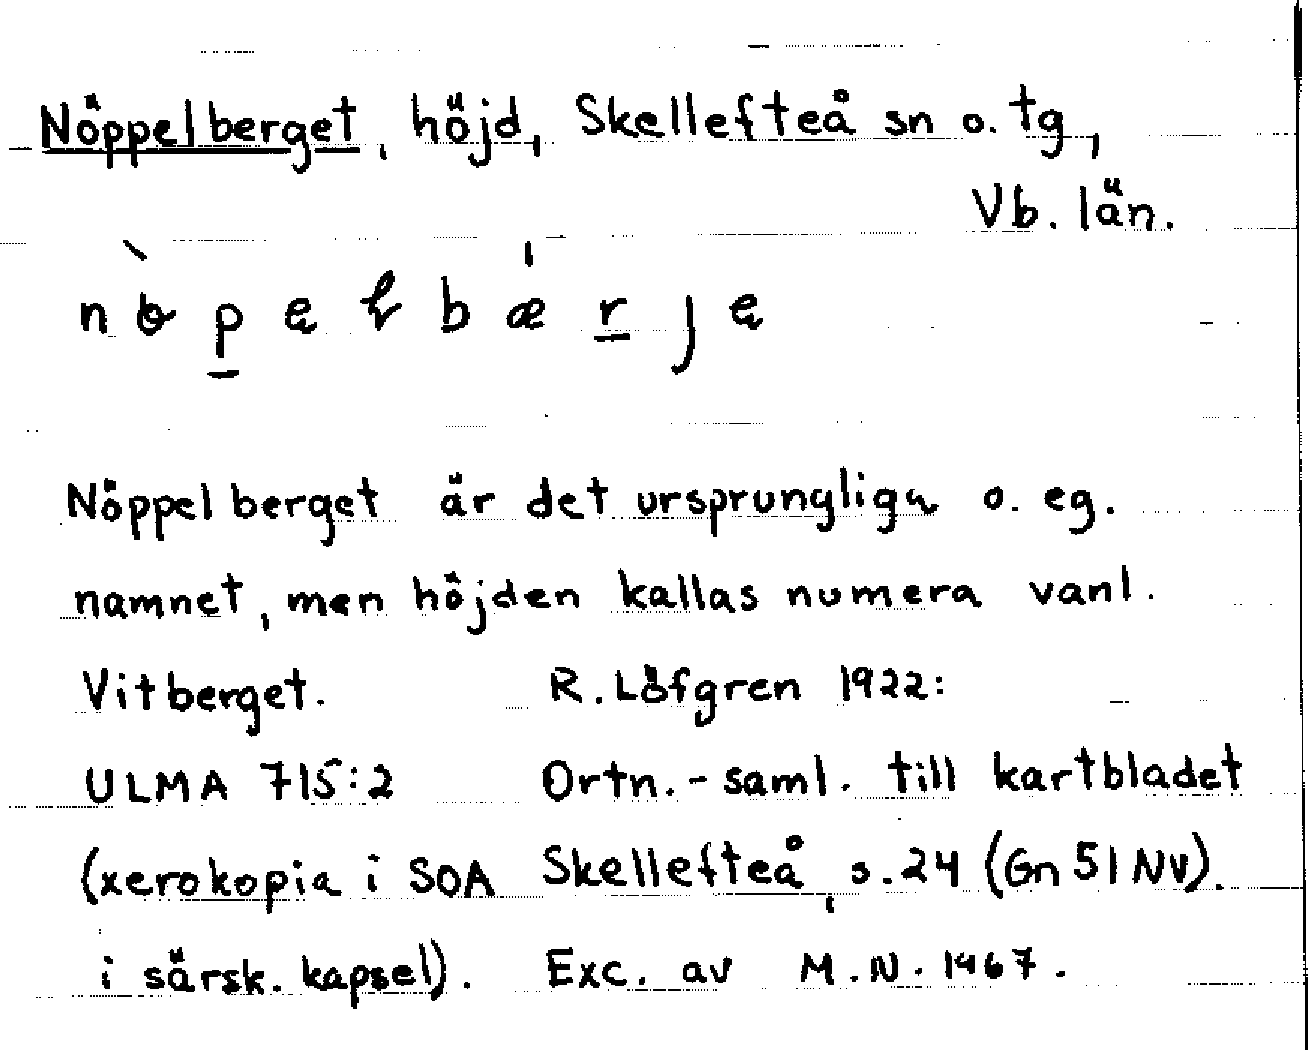 Nöppelberget, höjd, Skellefteå sn o. tg,
Vb. län.
Nöppelberget är det ursprungliga o. eg.
namnet, men höjden kallas numera vanl.
Vitberget. R. Löfgren 1922:
ULMA 715:2 Ortn.-saml. till kartbladet
(xerokopia i SOA Skellefteå, s.24 (Gn 51 NV).
i särsk. kapsel). Exc. av M.N. 1967.